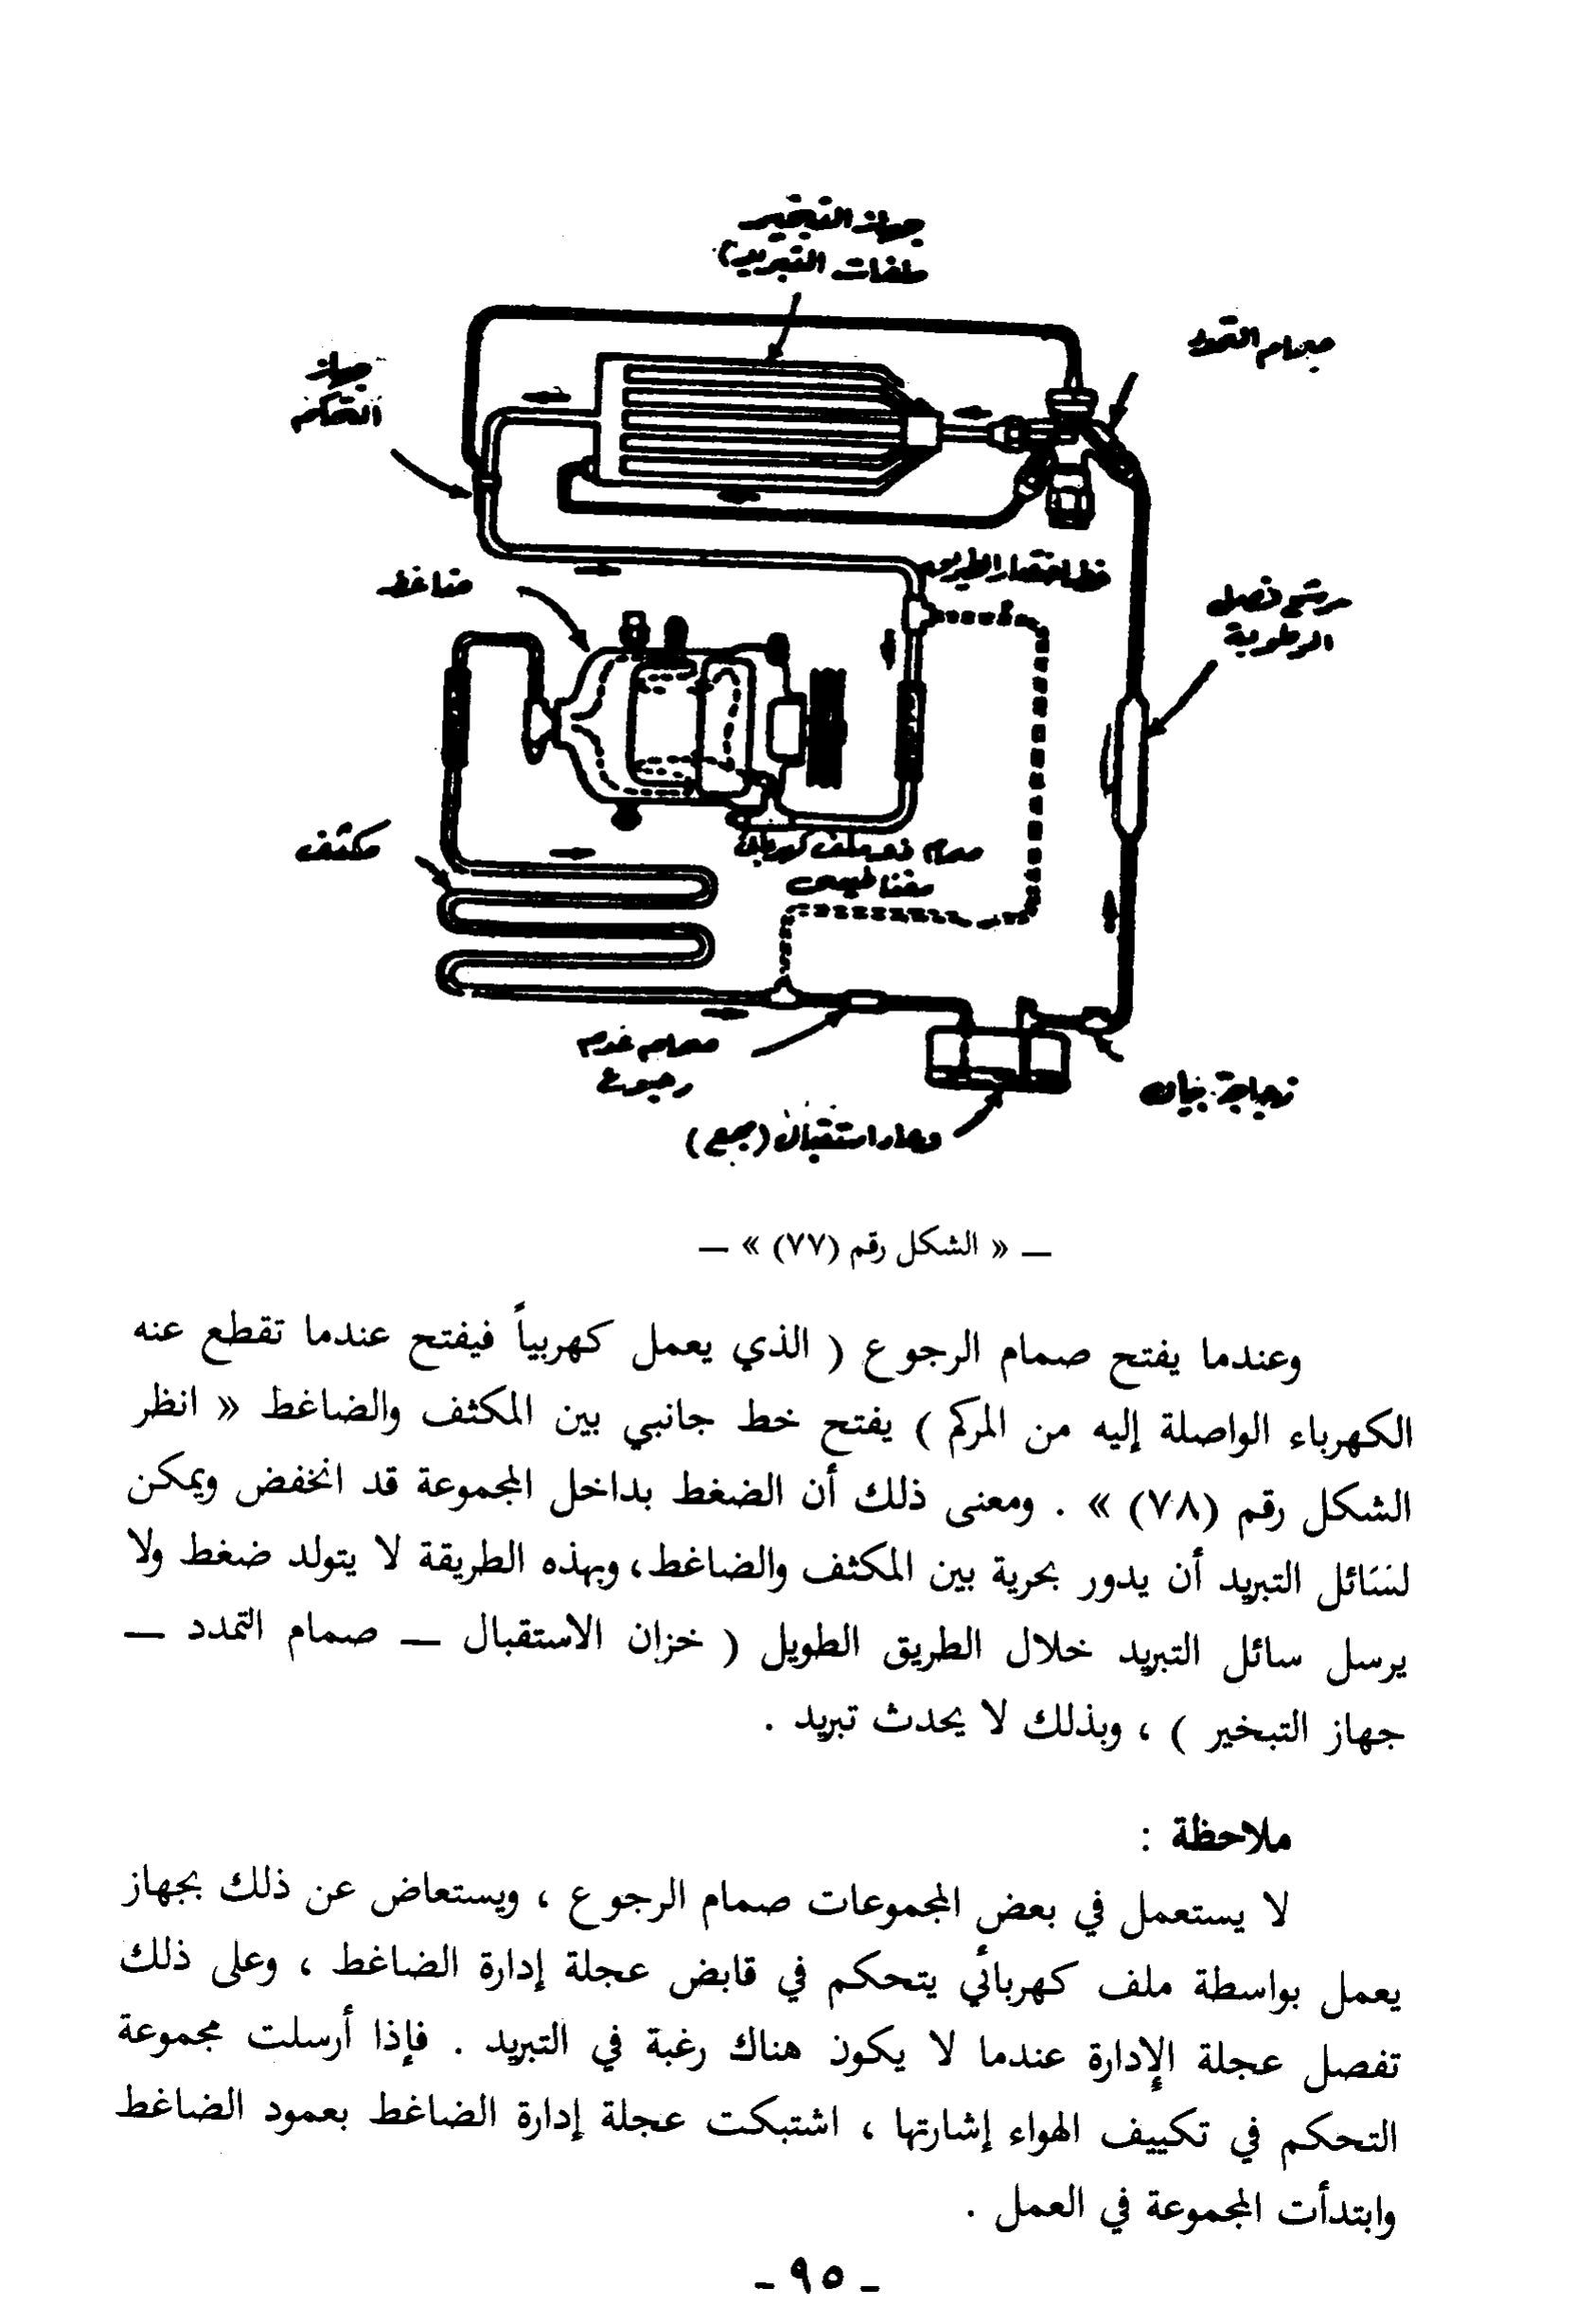 جهاز التبخير
ملفات التبريد)
صمام التمدد
جهاز
التحكم
خط اختصار الطريق
ضاغط
مرشح فصل
الرطوبة
مكثف
صمام ذو ملف كهربائى
مغناطيسى
صمام عدم
رجوع
زجاجة بيان
وعاء استقبال (مجمع)
— « الشكل رقم (٧٧) » —
وعندما يفتح صمام الرجوع ( الذي يعمل كهربياً فيفتح عندما تقطع عنه
الكهرباء الواصلة إليه من المركم ) يفتح خط جانبي بين المكثف والضاغط « انظر
الشكل رقم (٧٨) » . ومعنى ذلك أن الضغط بداخل المجموعة قد انخفض ويمكن
لسَائل التبريد أن يدور بحرية بين المكثف والضاغط، وبهذه الطريقة لا يتولد ضغط ولا
يرسل سائل التبريد خلال الطريق الطويل ( خزان الاستقبال — صمام التمدد —
جهاز التبخير ) ، وبذلك لا يحدث تبريد .
ملاحظة :
لا يستعمل في بعض المجموعات صمام الرجوع ، ويستعاض عن ذلك بجهاز
يعمل بواسطة ملف كهربائي يتحكم في قابض عجلة إدارة الضاغط ، وعلى ذلك
تفصل عجلة الإدارة عندما لا يكون هناك رغبة في التبريد . فإذا أرسلت مجموعة
التحكم في تكييف الهواء إشارتها ، اشتبكت عجلة إدارة الضاغط بعمود الضاغط
وابتدأت المجموعة في العمل .
- ٩٥ -